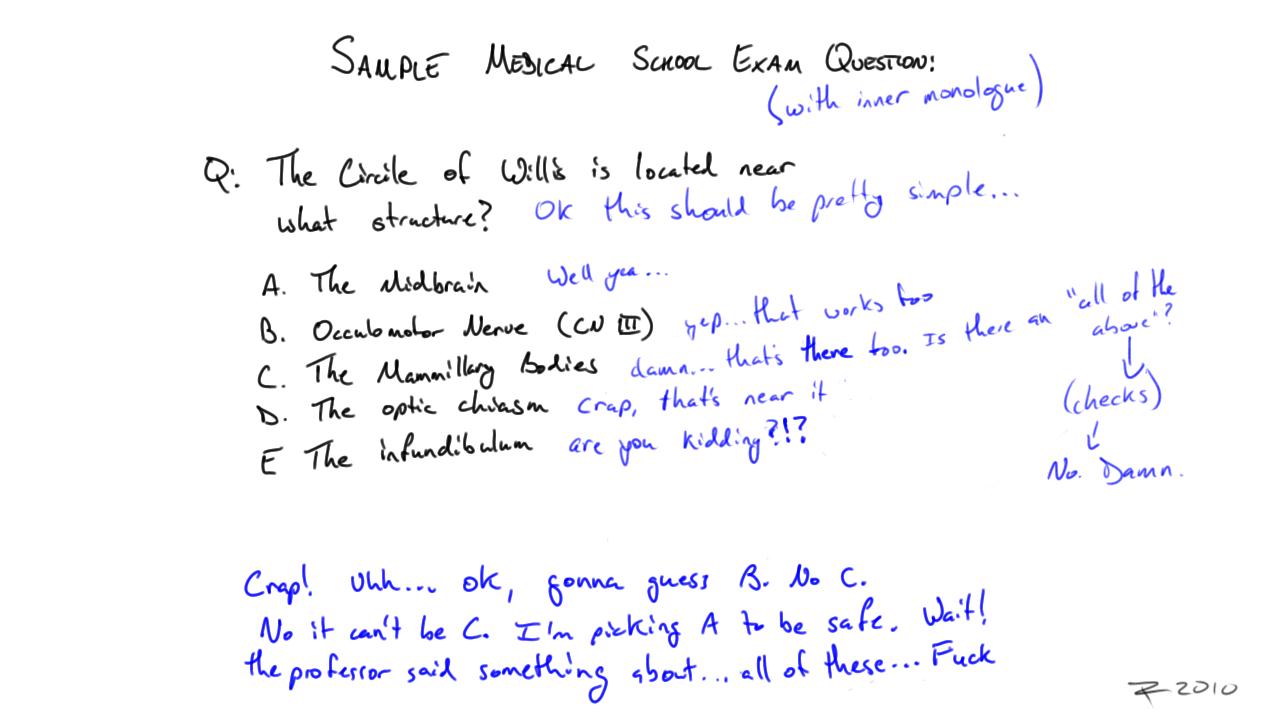 SAMPLE MEDICAL SCHOOL EXAM QUESTION:
(with inner monologue)
Q: The Circile of Willis is located near
what structure? OK this should be pretty simple...
A. The Midbrain Well yea...
B. Occulomotor Nerve (CN III) yep... that works too
C. The Mammillary Bodies damn... that's there too. Is there an "all of the
above"?
D. The optic chiasm crap, that's near it
(checks)
E The infundibulum are you kidding?!?
No. Damn.
Crap! Uhh... ok, gonna guess B. No C.
No it can't be C. I'm picking A to be safe. Wait!
the professor said something about... all of these... Fuck
2010